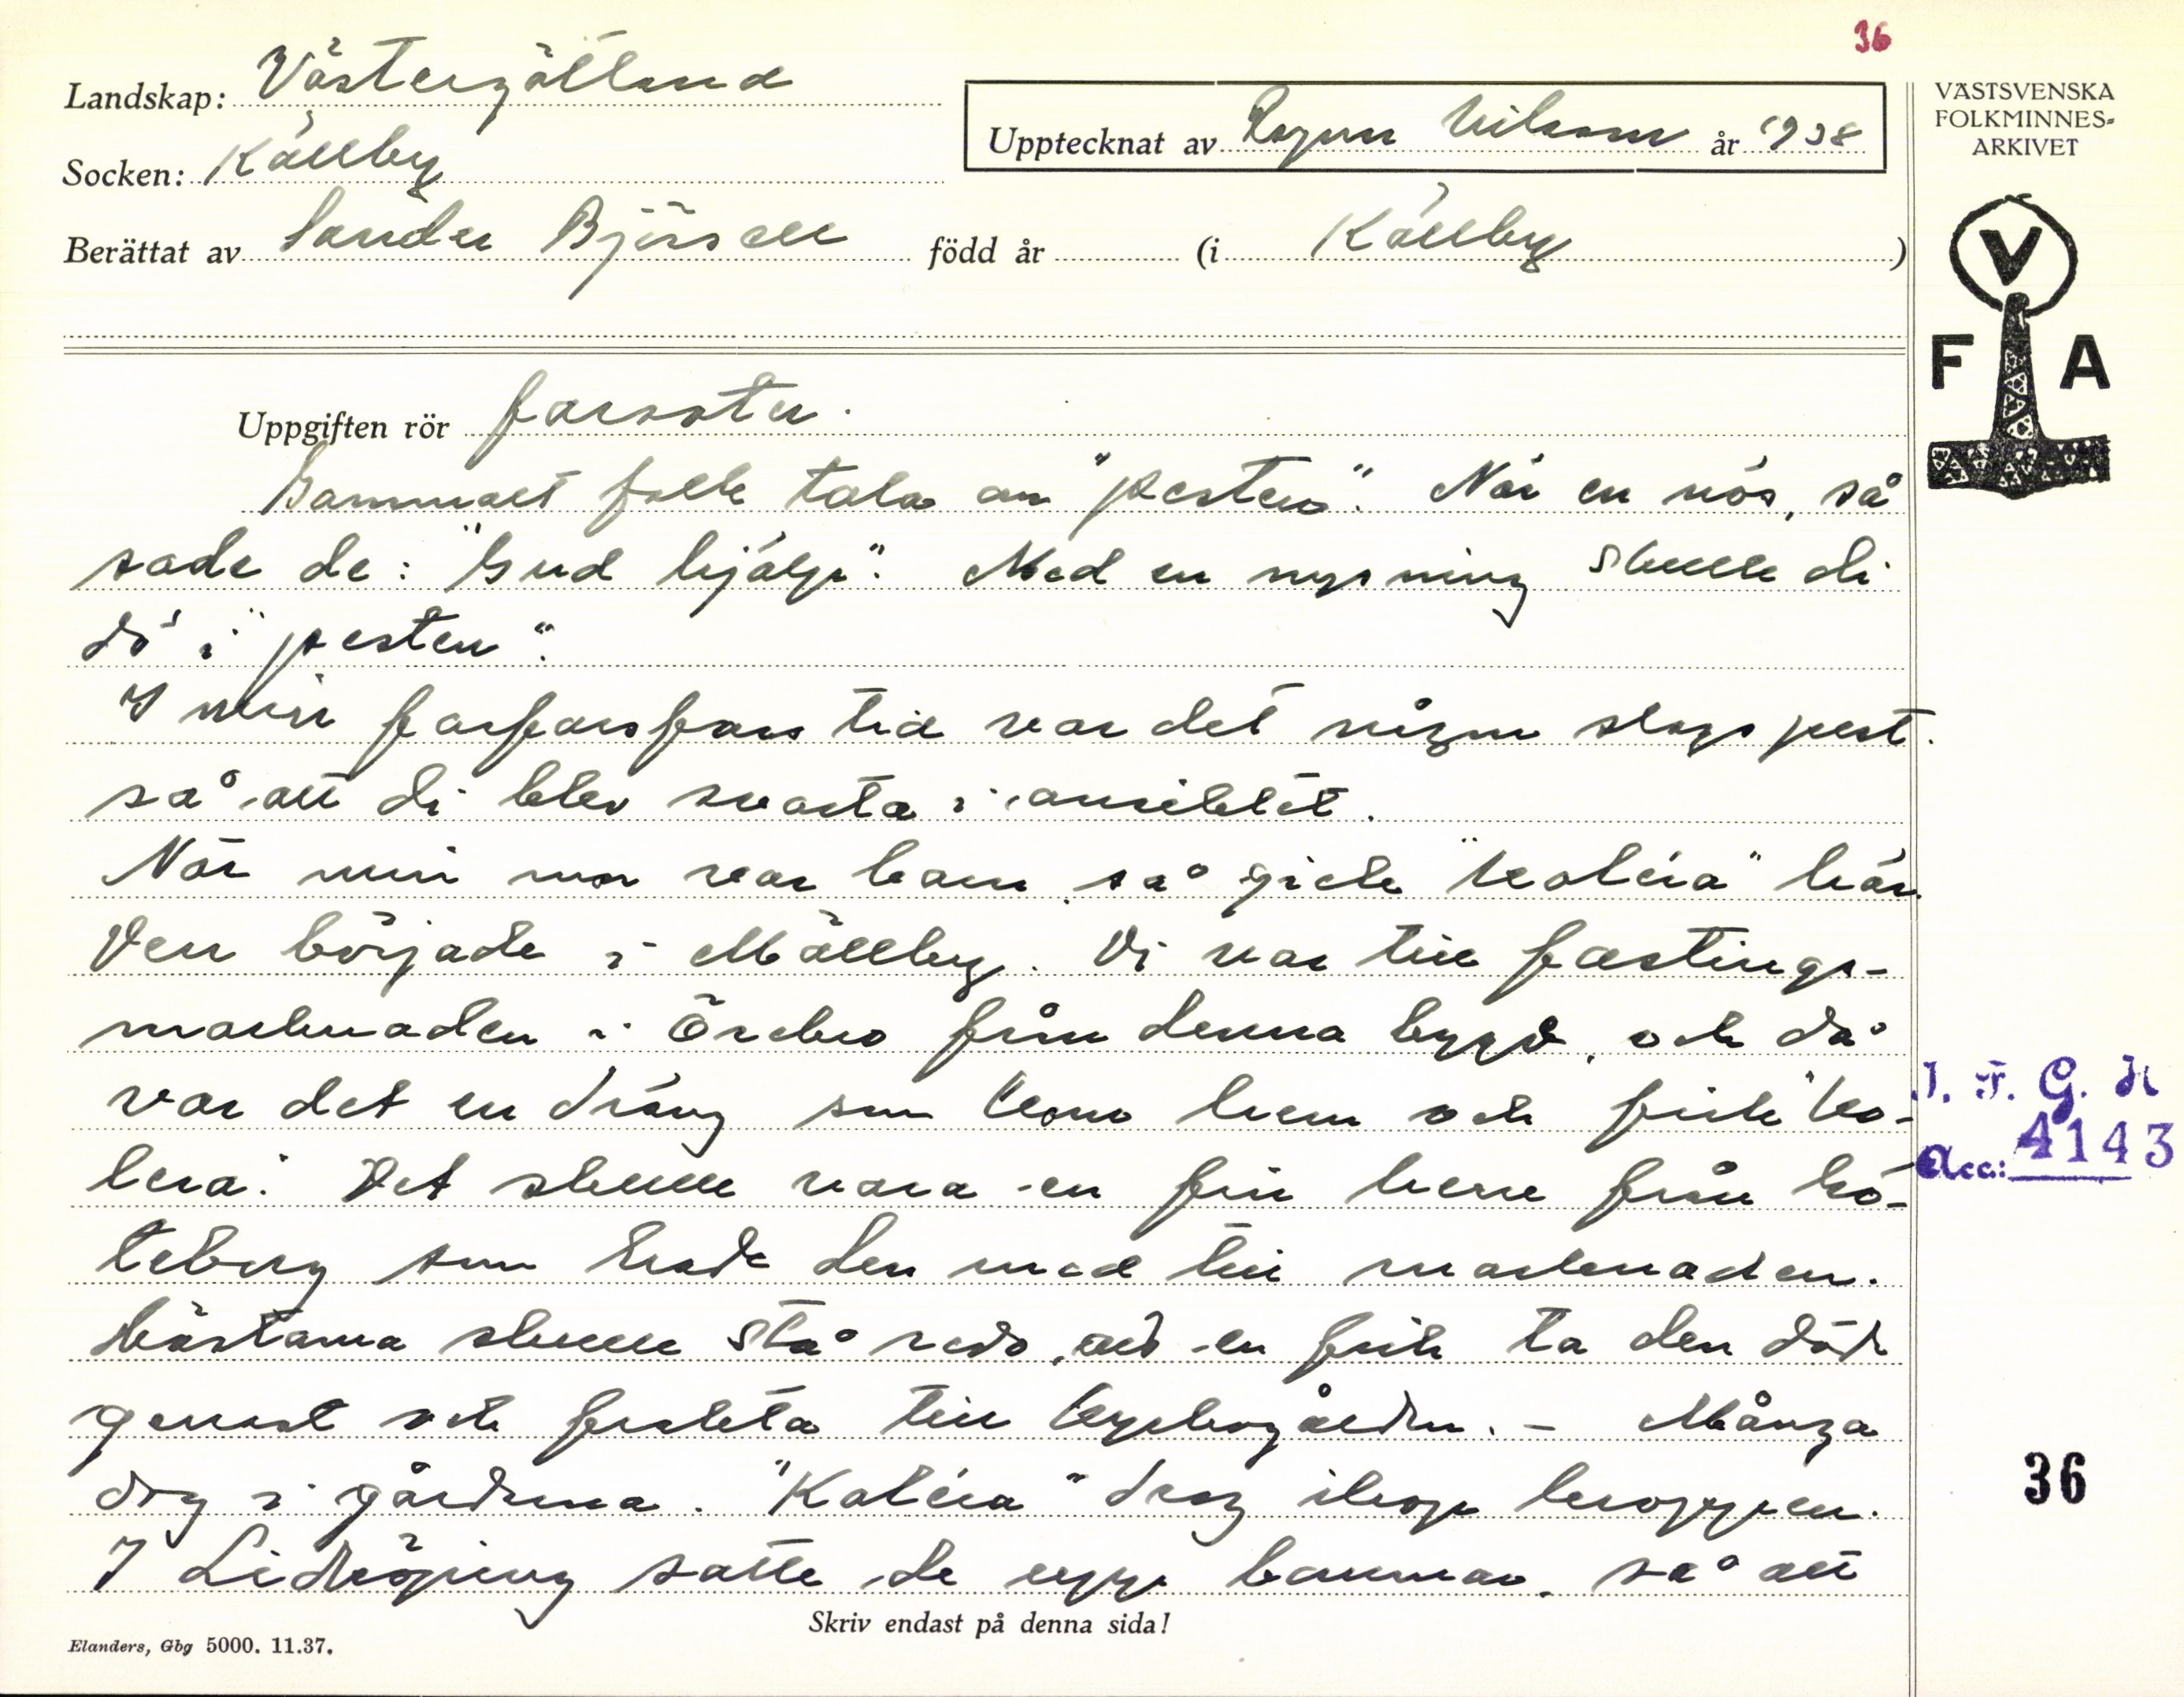 36
Landskap: Västergötland
Socken: Källby
Upptecknat av Ragnar Nilsson år 1938
Berättat av Sander Björsell född år (i Källby)
VÄSTSVENSKA
FOLKMINNES-
ARKIVET
V
F A
Uppgiften rör farsoter.
Gammalt folk tala om "pesten". När en nös, så
sade de: "Gud hjälp". Med en nysning skulle di
dö i "pesten".
I min farfarsfars tid var det någon slags pest.
så att di blev svarta i ansiktet.
När min mor var barn så gick "koléra" här.
Den började i Mällby. Di var till fastings-
marknaden i Örebro från denna bygd, och då
var det en dräng som kom hem och fick "ko-
lera". Det skulle vara en fin herre från Gö-
teborg som hade den med till marknaden.
Hästarna skulle stå redo, att en fick ta den död
genast och forsla till kyrkogården. - Många
dog i gårdarna. "Koléra" drog ihop kroppen.
I Lidköping satte de upp bommar, så att
I. F. G. H
Acc: 4143
36
Skriv endast på denna sida!
Elanders, Gbg 5000. 11.37.